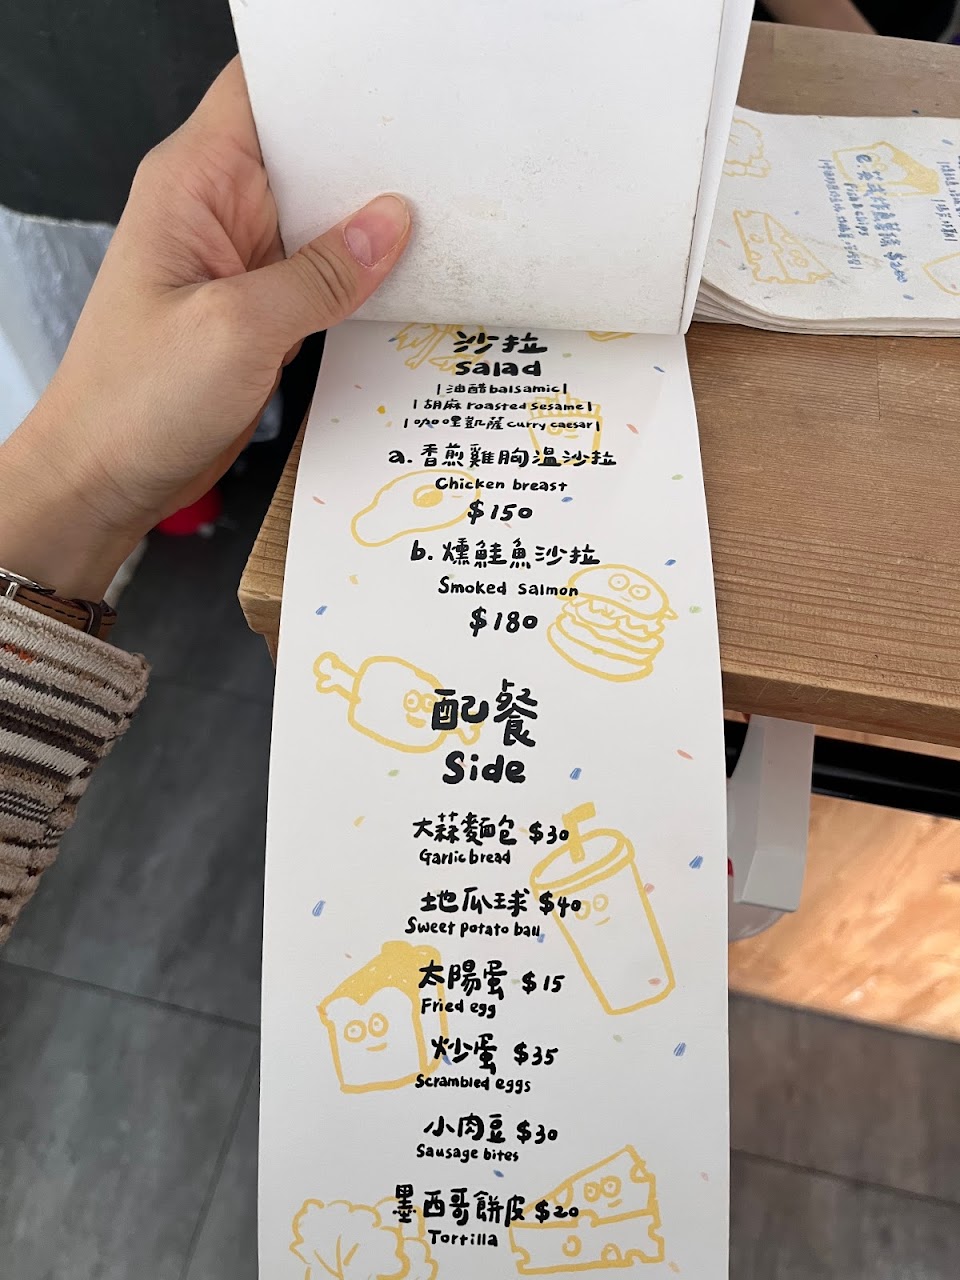 沙拉
salad
|油醋balsamic|
|胡麻roasted sesame|
|咖哩凱薩curry caesar|
a.香煎雞胸溫沙拉
Chicken breast
$150
b.燻鮭魚沙拉
Smoked salmon
$180
配餐
Side
大蒜麵包 $30
Garlic bread
地瓜球 $40
Sweet potato ball
太陽蛋 $15
Fried egg
炒蛋 $35
Scrambled eggs
小肉豆 $30
Sausage bites
墨西哥餅皮 $20
Tortilla
$200
Fish & chips